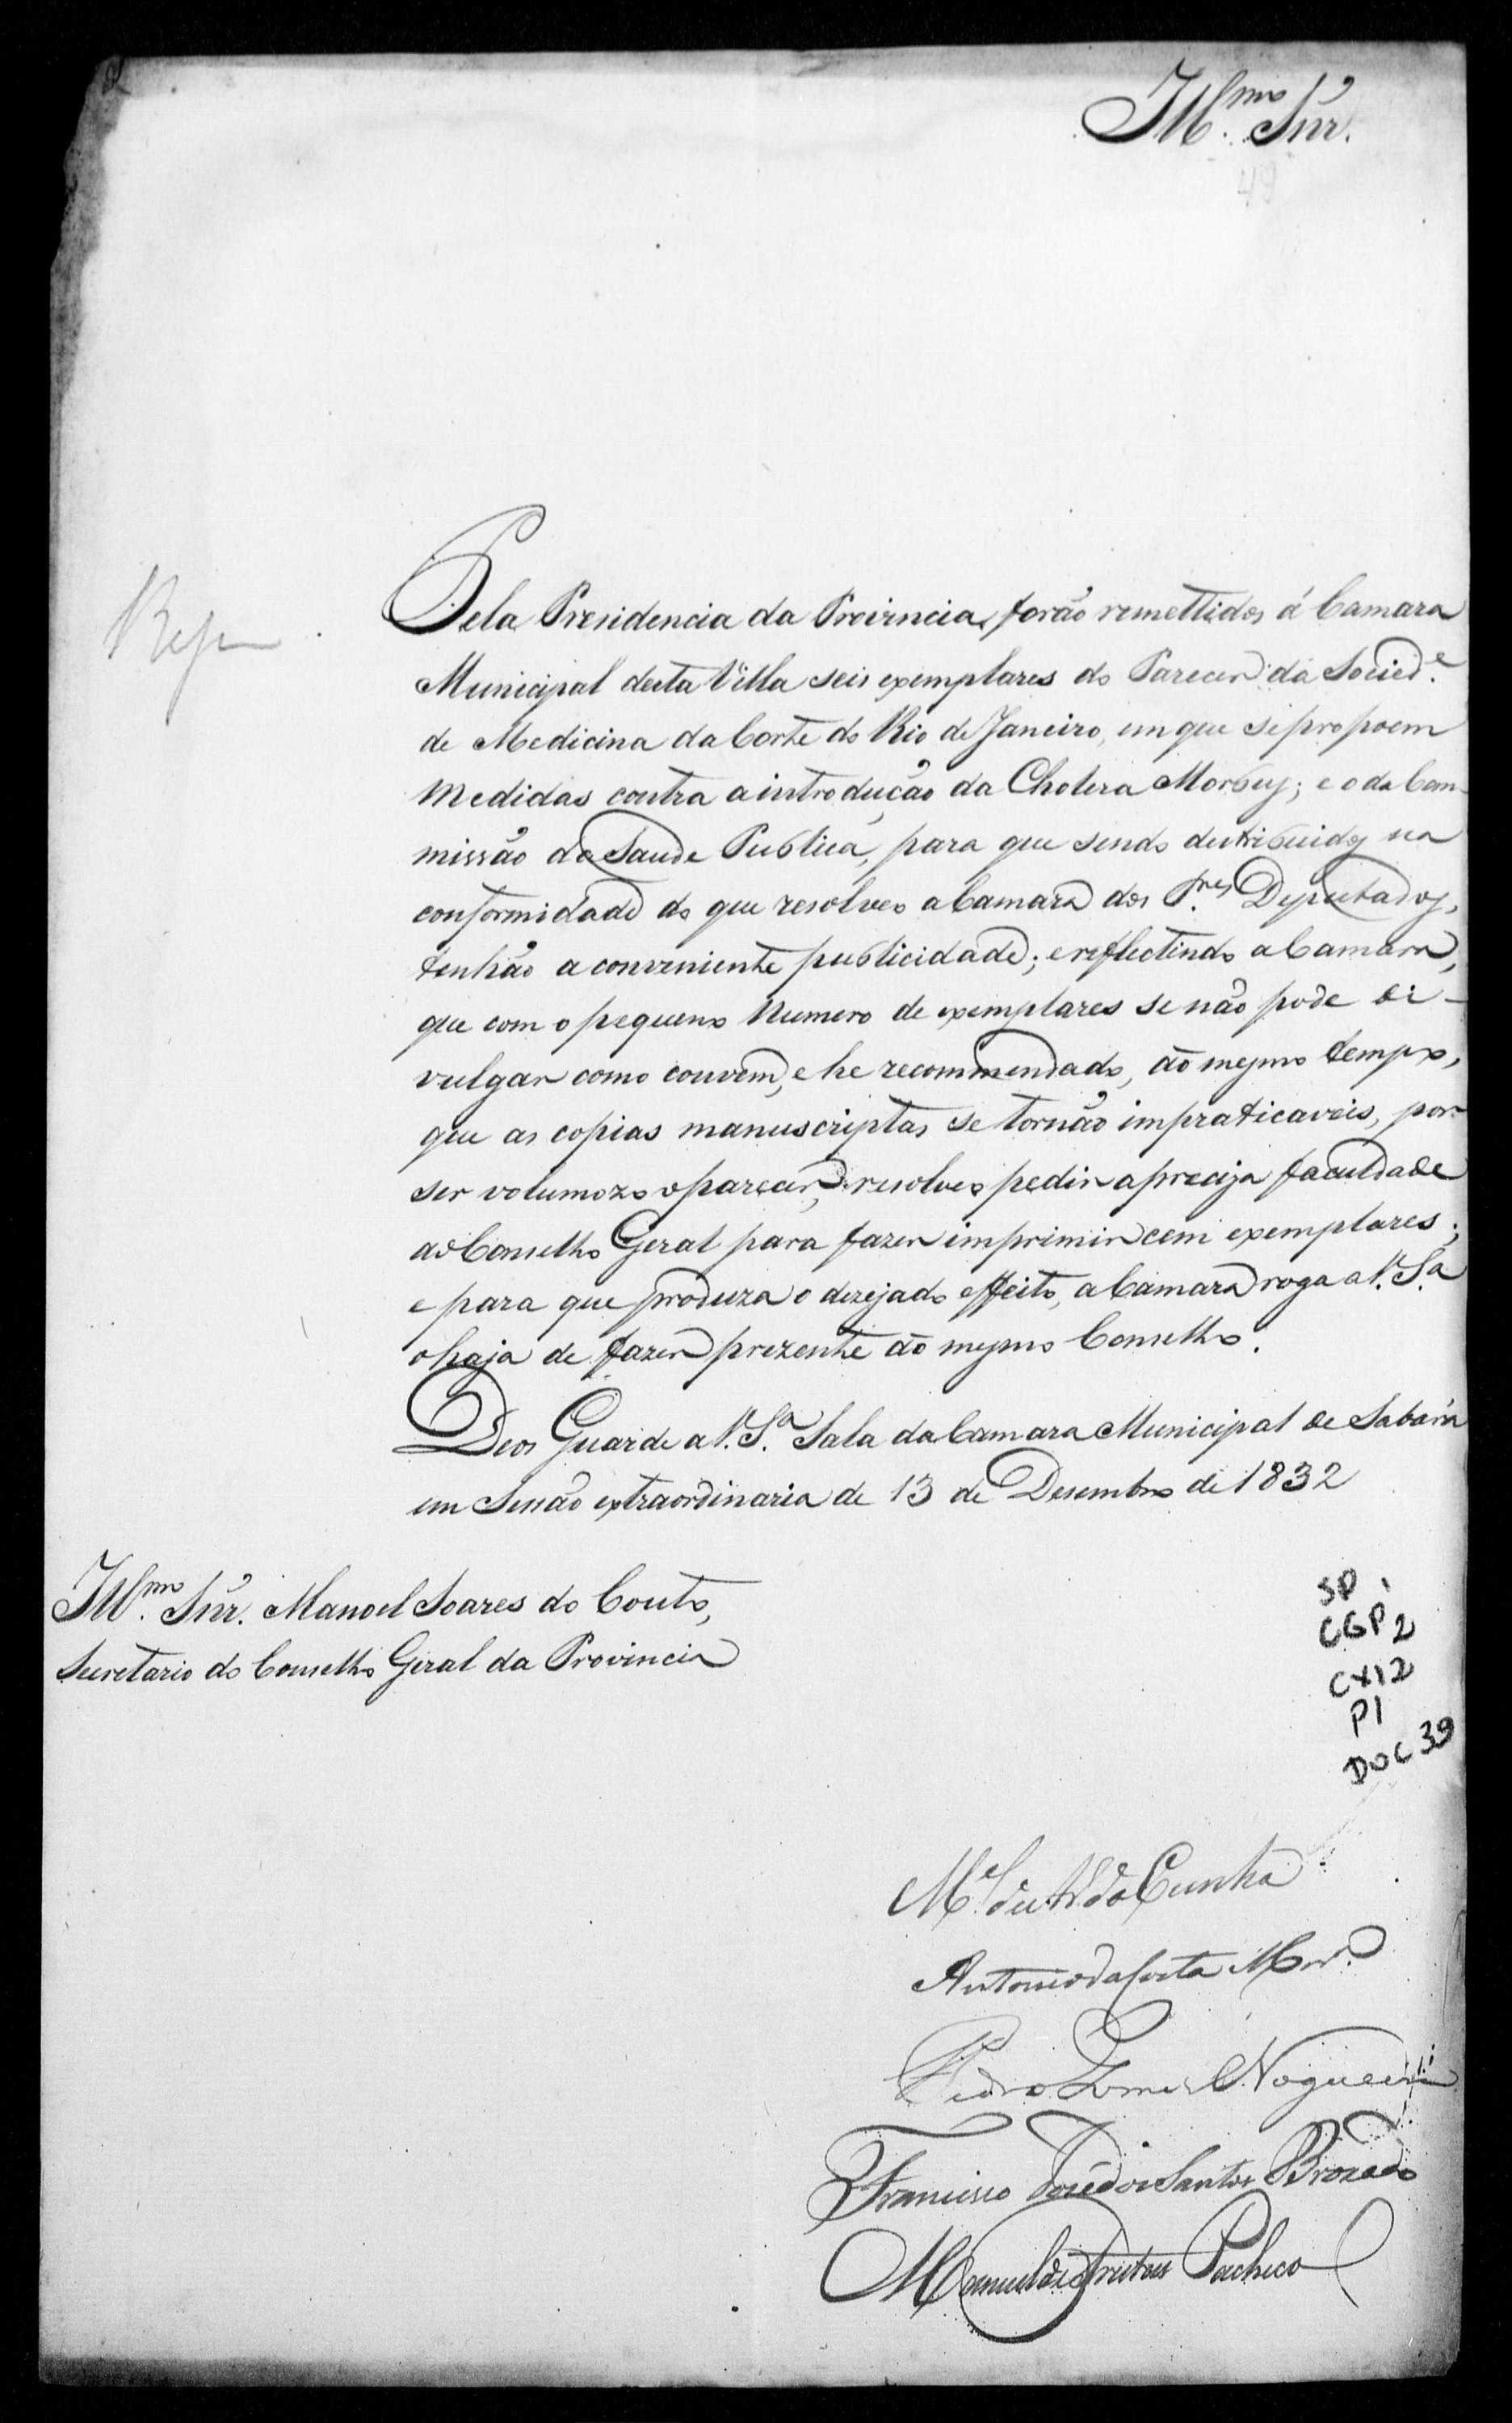 Ill.mo Snr.
49
Pela Presidencia da Provincia forão remettidos á Camara
Municipal desta Villa seis exemplares do Parecer da Socied.e
de Medicina da Corte do Rio de Janeiro, em que se propoem
medidas contra a introdução da Cholera Morbus; e o da Com-
missão da Saude Publica, para que sendo destribuidos na
conformidade do que resolveo a Camara dos Deputados,
tenhão a conveniente publicidade; e reflectindo a Camara,
que com o pequeno numero de exemplares se não pode di-
vulgar como convem, e he recommendado, ao mesmo tempo,
que as copias manuscriptas se tornão impraticaveis, por
ser volumozo o parecer, resolveo pedir a preciza faculdade
ao Conselho Geral para fazer imprimir cem exemplares;
e para que produza o dezejado effeito, a Camara roga a V. S.a
o haja de fazer prezente ao mesmo Conselho.
Deos Guarde a V. S.a Sala da Camara Municipal de Sabará
em Sessão extraordinaria de 13 de Desembro de 1832
Ill.mo Snr. Manoel Soares do Couto,
Secretario do Conselho Geral da Provincia
SP
CGP 2
CX12
P1
DOC 39
M.el da Cunha
Antonio da Costa
Pedro Gomes Nogueira
Francisco José dos Santos Brozado
Manuel de Freitas Pacheco